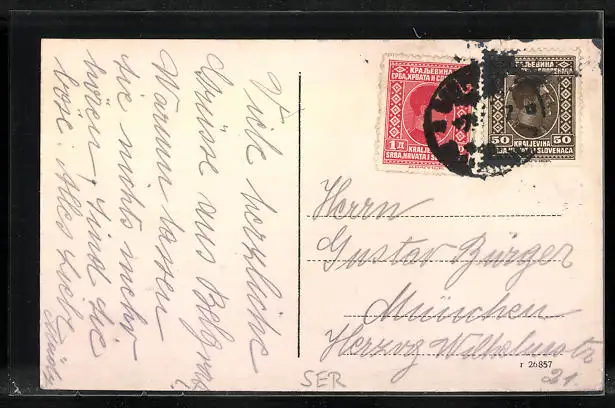 Viele herzliche
Grüsse aus Belgrad
Warum lassen
sie nichts mehr
hören, sind sie
böse. Alles Liebe
КРАЉЕВИНА
СРБА, ХРВАТА И
1 Д
KRALJEVINA
SRBA, HRVATA I
КРАЉЕВИНА
50 50
KRALJEVINA
I SLOVENACA
Herrn
Gustav Bürger
München
Herzog Wilhelmstr
21.
r 26857
SER